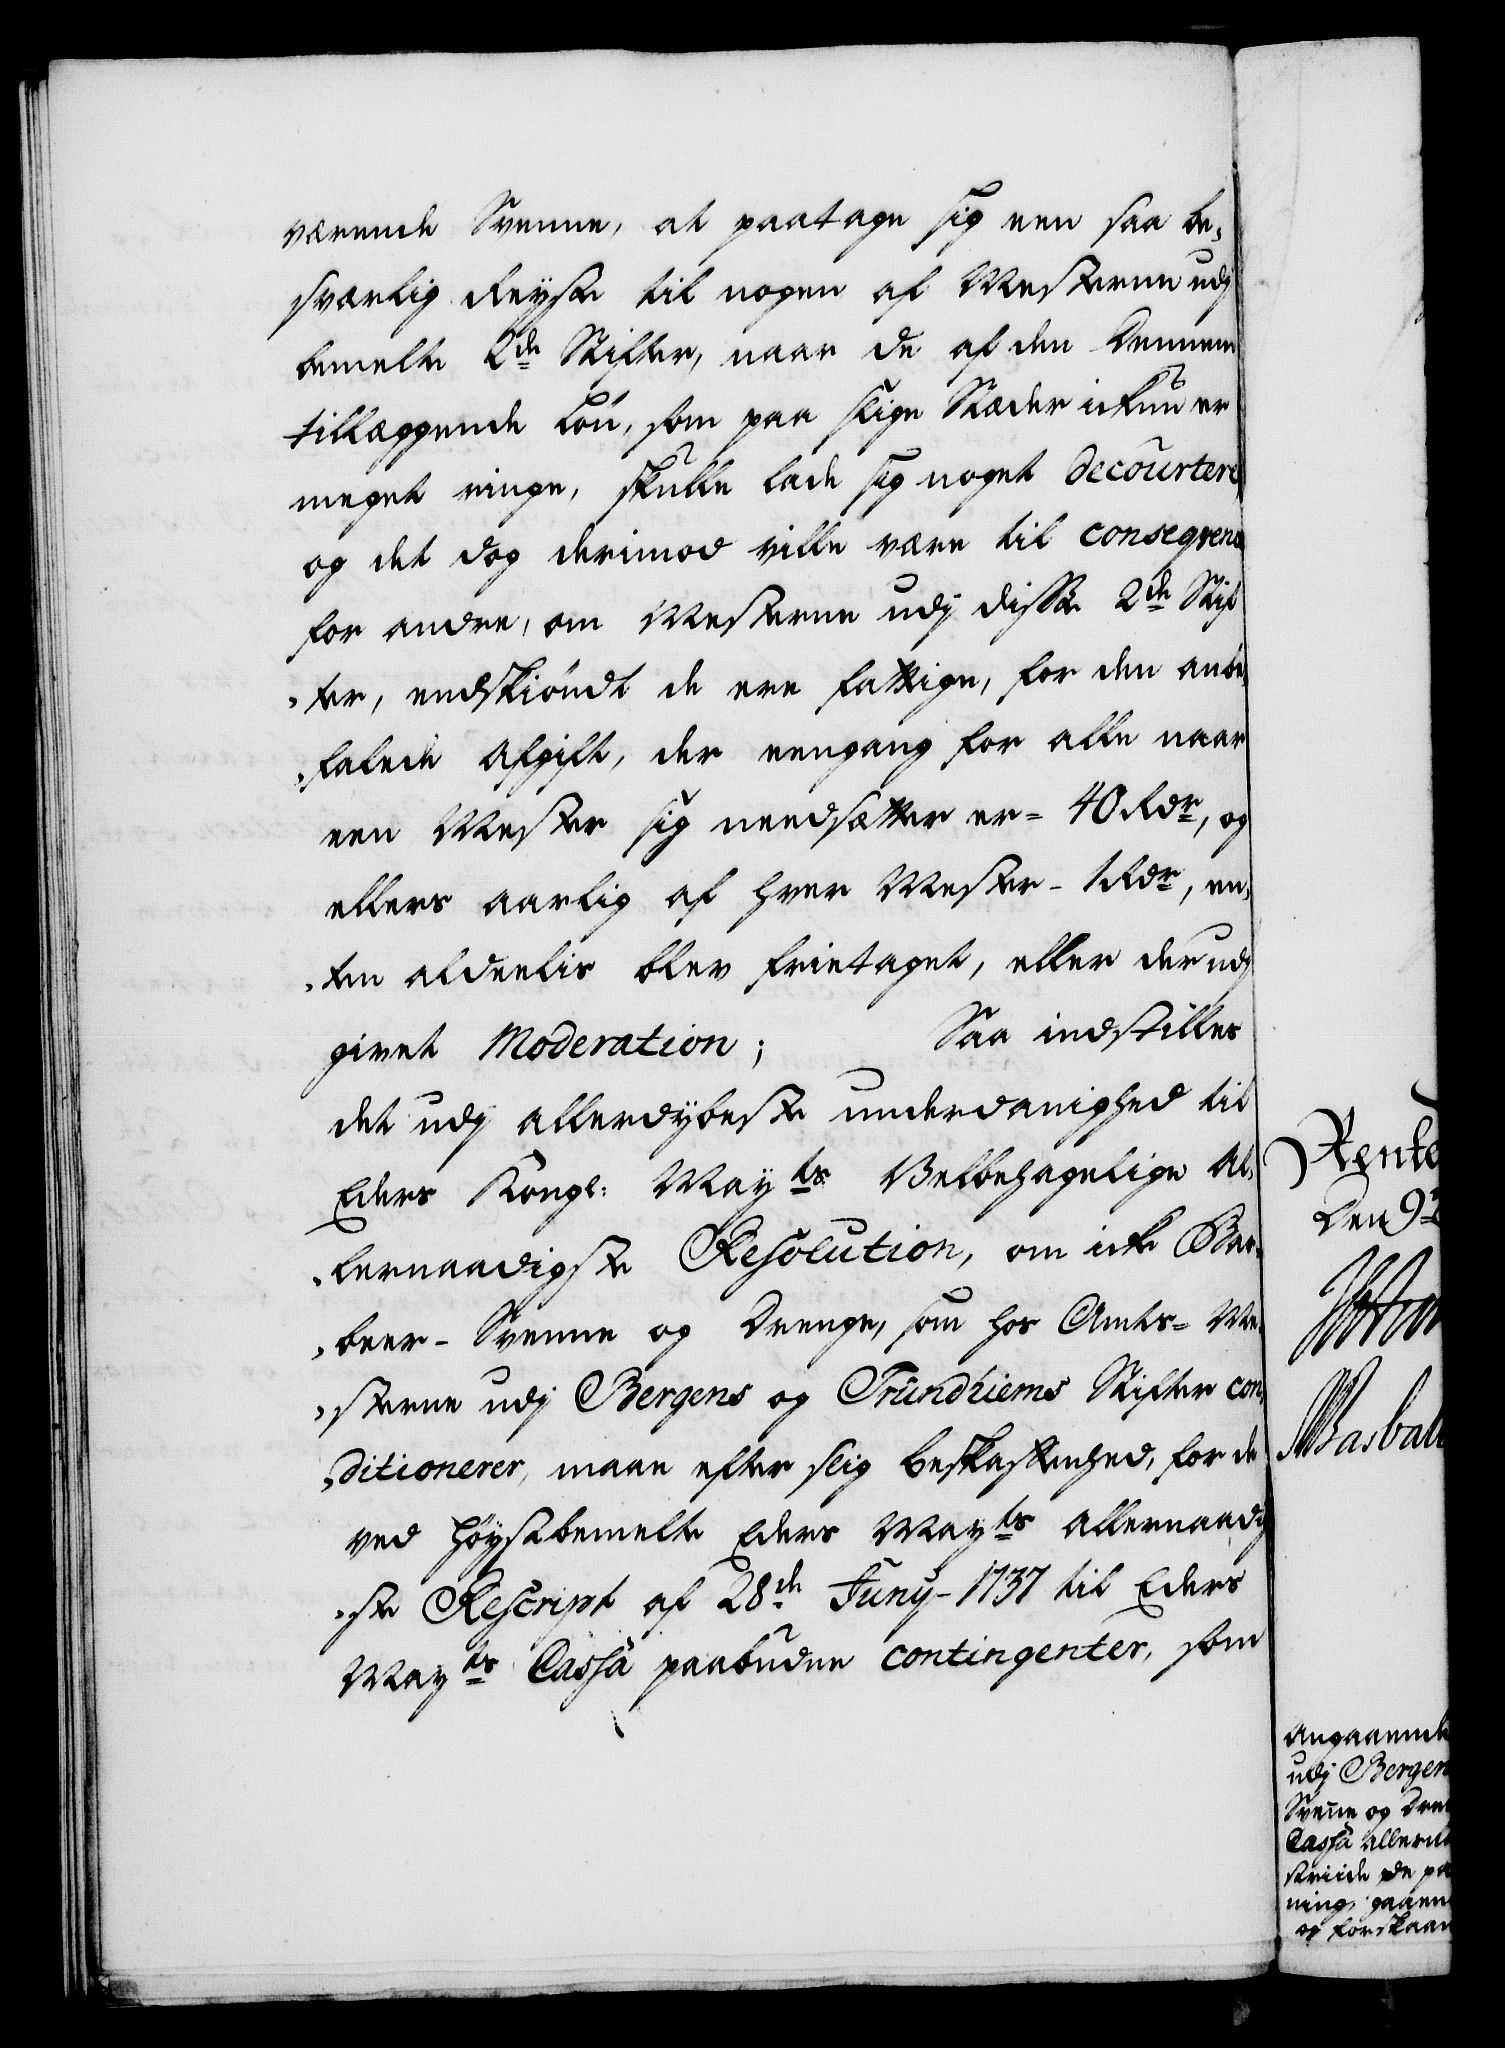 værende Svenne, at paatage sig een saa be„
sværlig Reyse til nogen af Mesterne udj
bemelte 2de Stifter, naar de af den Dennem
tillæggende Løn, som paa slige Stæder ickun er
meget ringe, skulle lade sig noget decourtere
og det dog derimod ville være til conseqvence
for andre, om Mesterne udj disse 2de Stif
„ter, endskiøndt de ere fattige, for den anbe„
„falede Afgift, der eengang for alle naar
een Mester sig needsætter er = 40 Rdr, og
ellers aarlig af hver Mester - 1 Rdr, en„
„ten aldeelis blev frietaget, eller derudj
givet Moderation; Saa indstilles
det udj allerdybeste underdanighed til
Eders Kongl: Mayts Velbehagelige Al„
„lernaadigste Resolution, om icke Bar„
„beer-Svenne og Drenge, som hos Amts-Me„
„sterne udj Bergens og Trundhiems Stifter con„
„ditionerer, maae efter slig beskaffenhed, for de
ved høystbemelte Eders Mayts allernaadig
„ste Rescript af 28de Juny - 1737 til Eders
Mayts Cassa paabudne contingenter, som
Rente
den 9
angaaende
udj Bergen
Svenne og Dren
Cassa allern
de paa
ning, gaaen
og forskaan